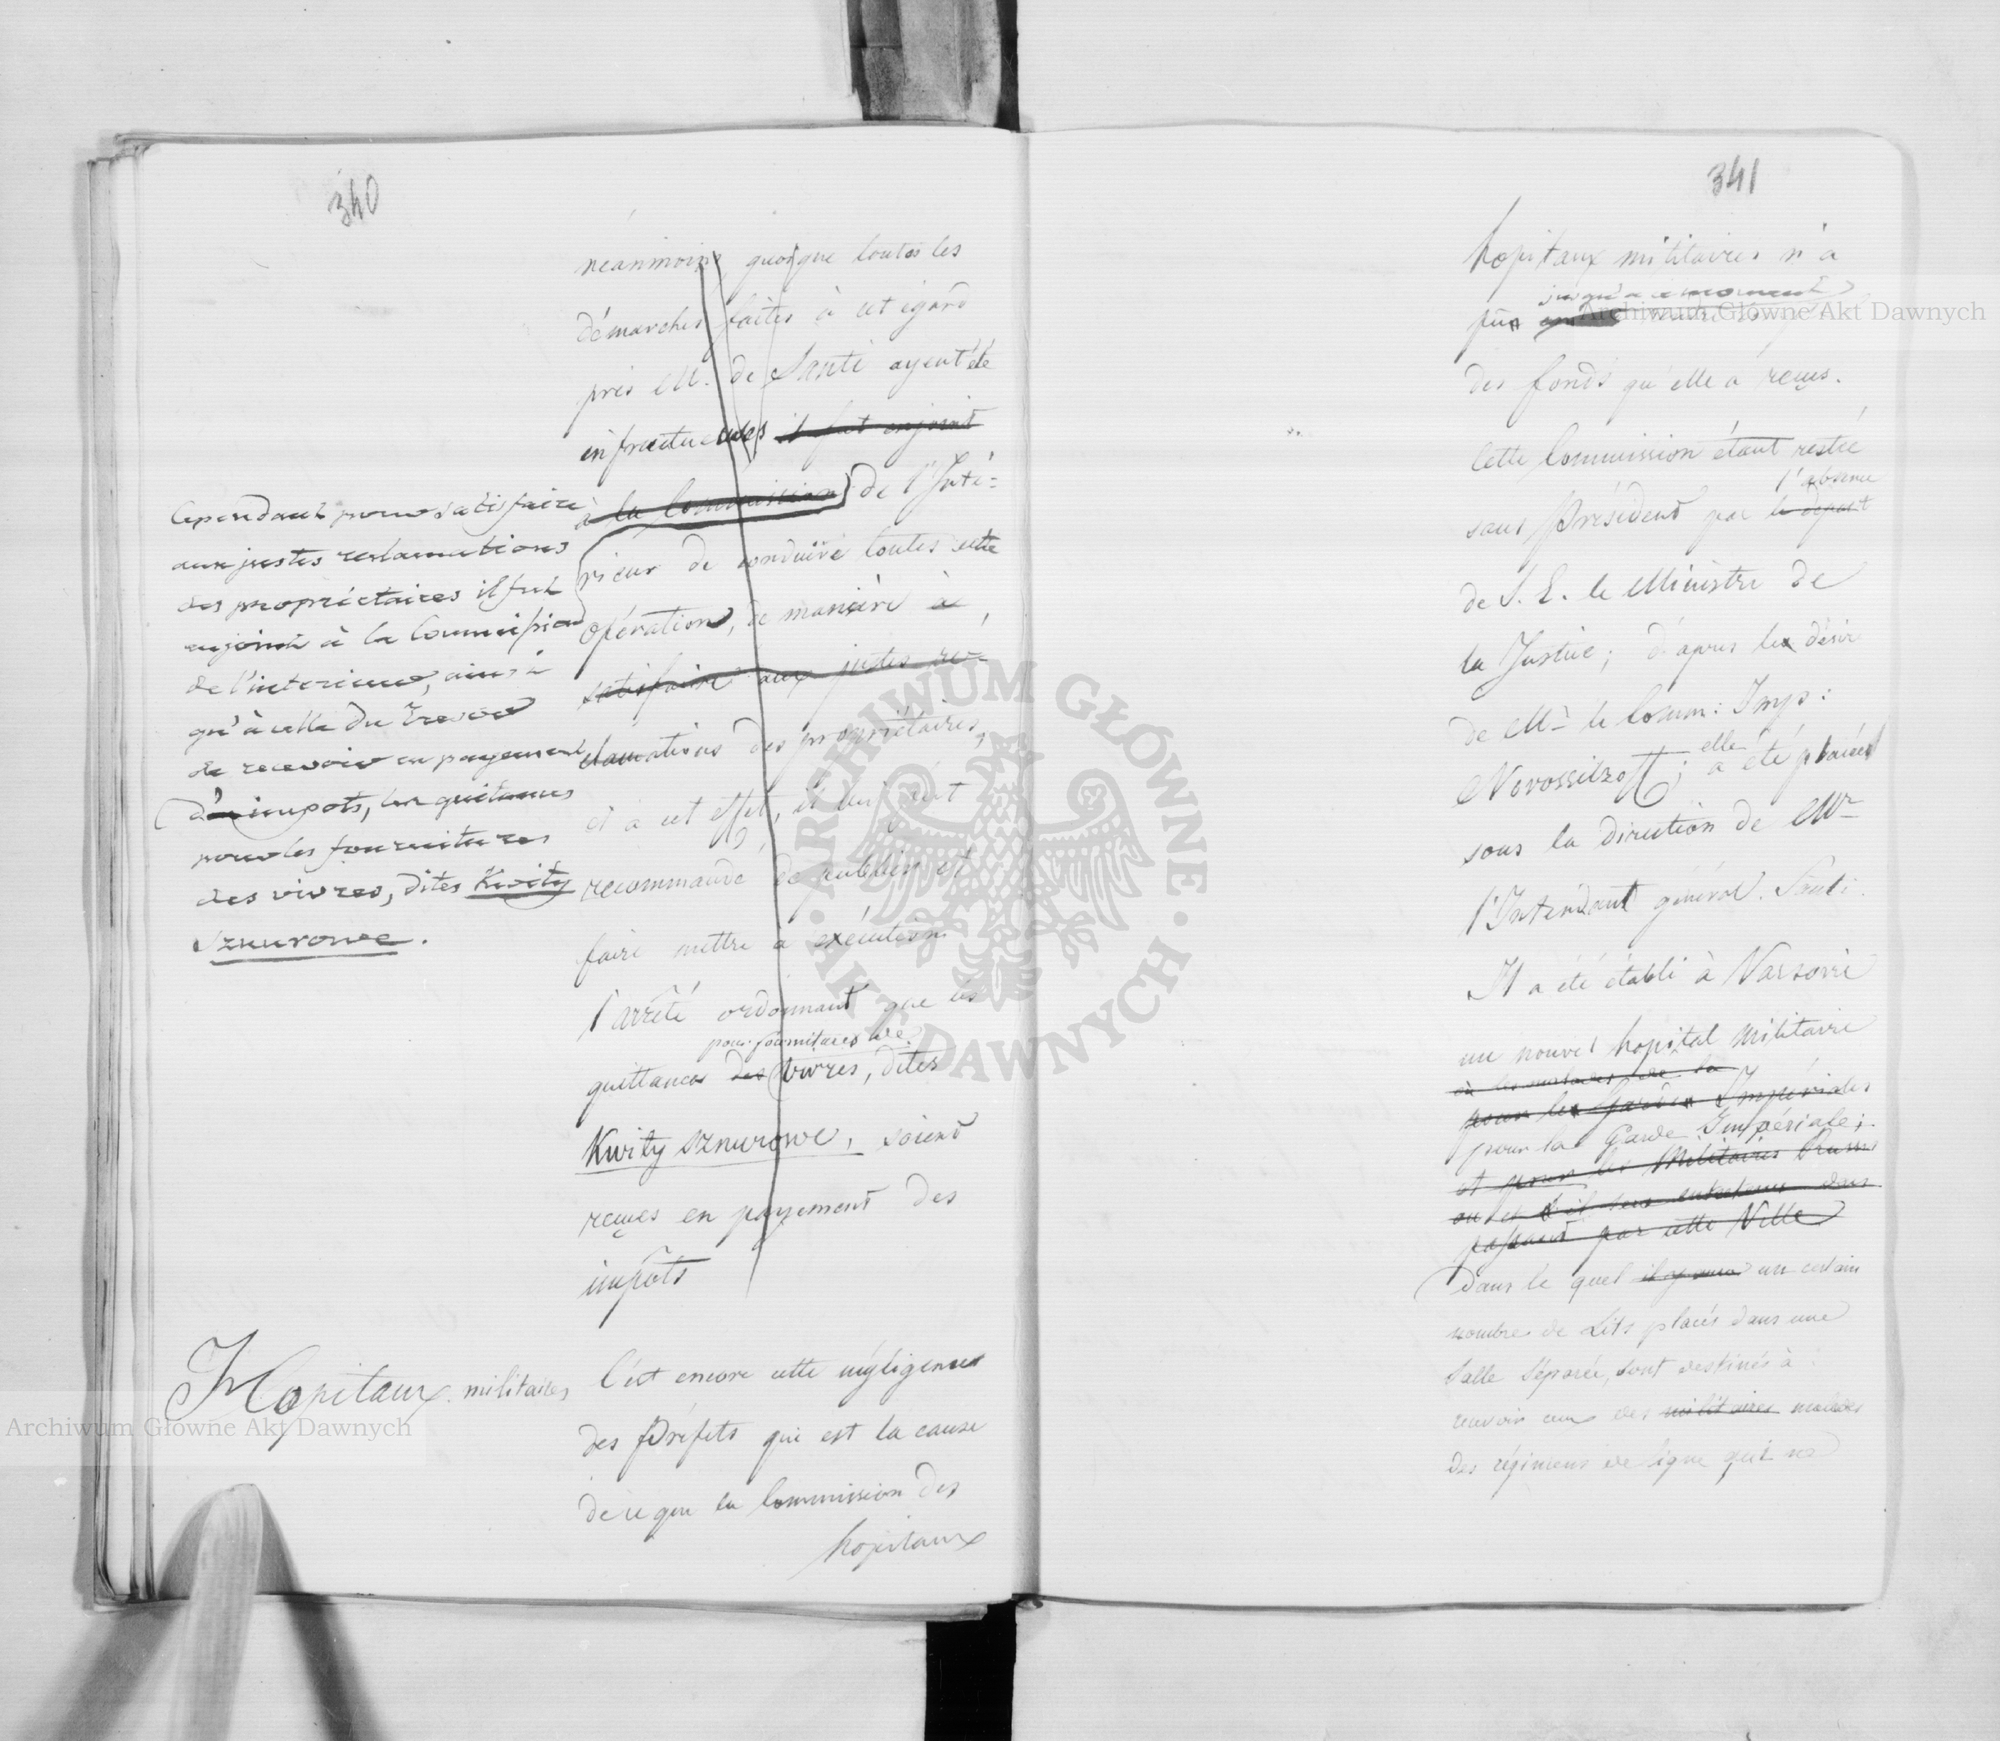 340
néanmoins, quoique toutes les
démarches faites à cet égard
près M. de Santi ayent été
infructueuses il fut enjoint
à la Commission de l'Inté=
rieur de conduire toutes cette
opération, de manière à
satisfaire aux justes ré=
clamations des propriétaires,
et à cet effet, il lui fut
recommandé de publier et
faire mettre à exécution
l'arrêté ordonnant que les
pour fournitures de
quittances des vivres, dites
Kwity sznurowe, soient
reçues en payement des
impôts
Cependant pour satisfaire
aux justes reclamations
des propriétaires il fut
enjoint à la Commission
de l'interieur, ainsi
qu'à celle du Tresor
de recevoir en payement
d'impots, les quitances
pour les fournitures
des vivres, dites Kwity
Sznurowe.
Hopitaux militaires
C'est encore cette négligence
des Préfets qui est la cause
de ce que la Commission des
hopitaux
341
hopitaux militaires n'a
jusqu'à ce moment
pu
des fonds qu'elle a reçus.
Cette Commission étant restée
l'absence
sans Président par le départ
de S. E. le Ministre de
la Justice; d'après le désir
de Mr le Comm: Imp:
elle
Novossiltzoff; a été placée
sous la direction de Mr
l'Intendant général. Santi.
Il a été établi à Varsovie
un nouvel hopital militaire
où les malades de la
pour les Gardes Impériales
pour la Garde Impériale;
et pour les Militaires
ou
passant par cette Ville
dans le quel il y aura un certain
nombre de Lits placés dans une
Salle Séparée, sont destinés à
recevoir ceux des militaires malades
des régimens de ligne qui ne
Archiwum Główne Akt Dawnych
Archiwum Główne Akt Dawnych
· ARCHIWUM GŁÓWNE · AKT DAWNYCH